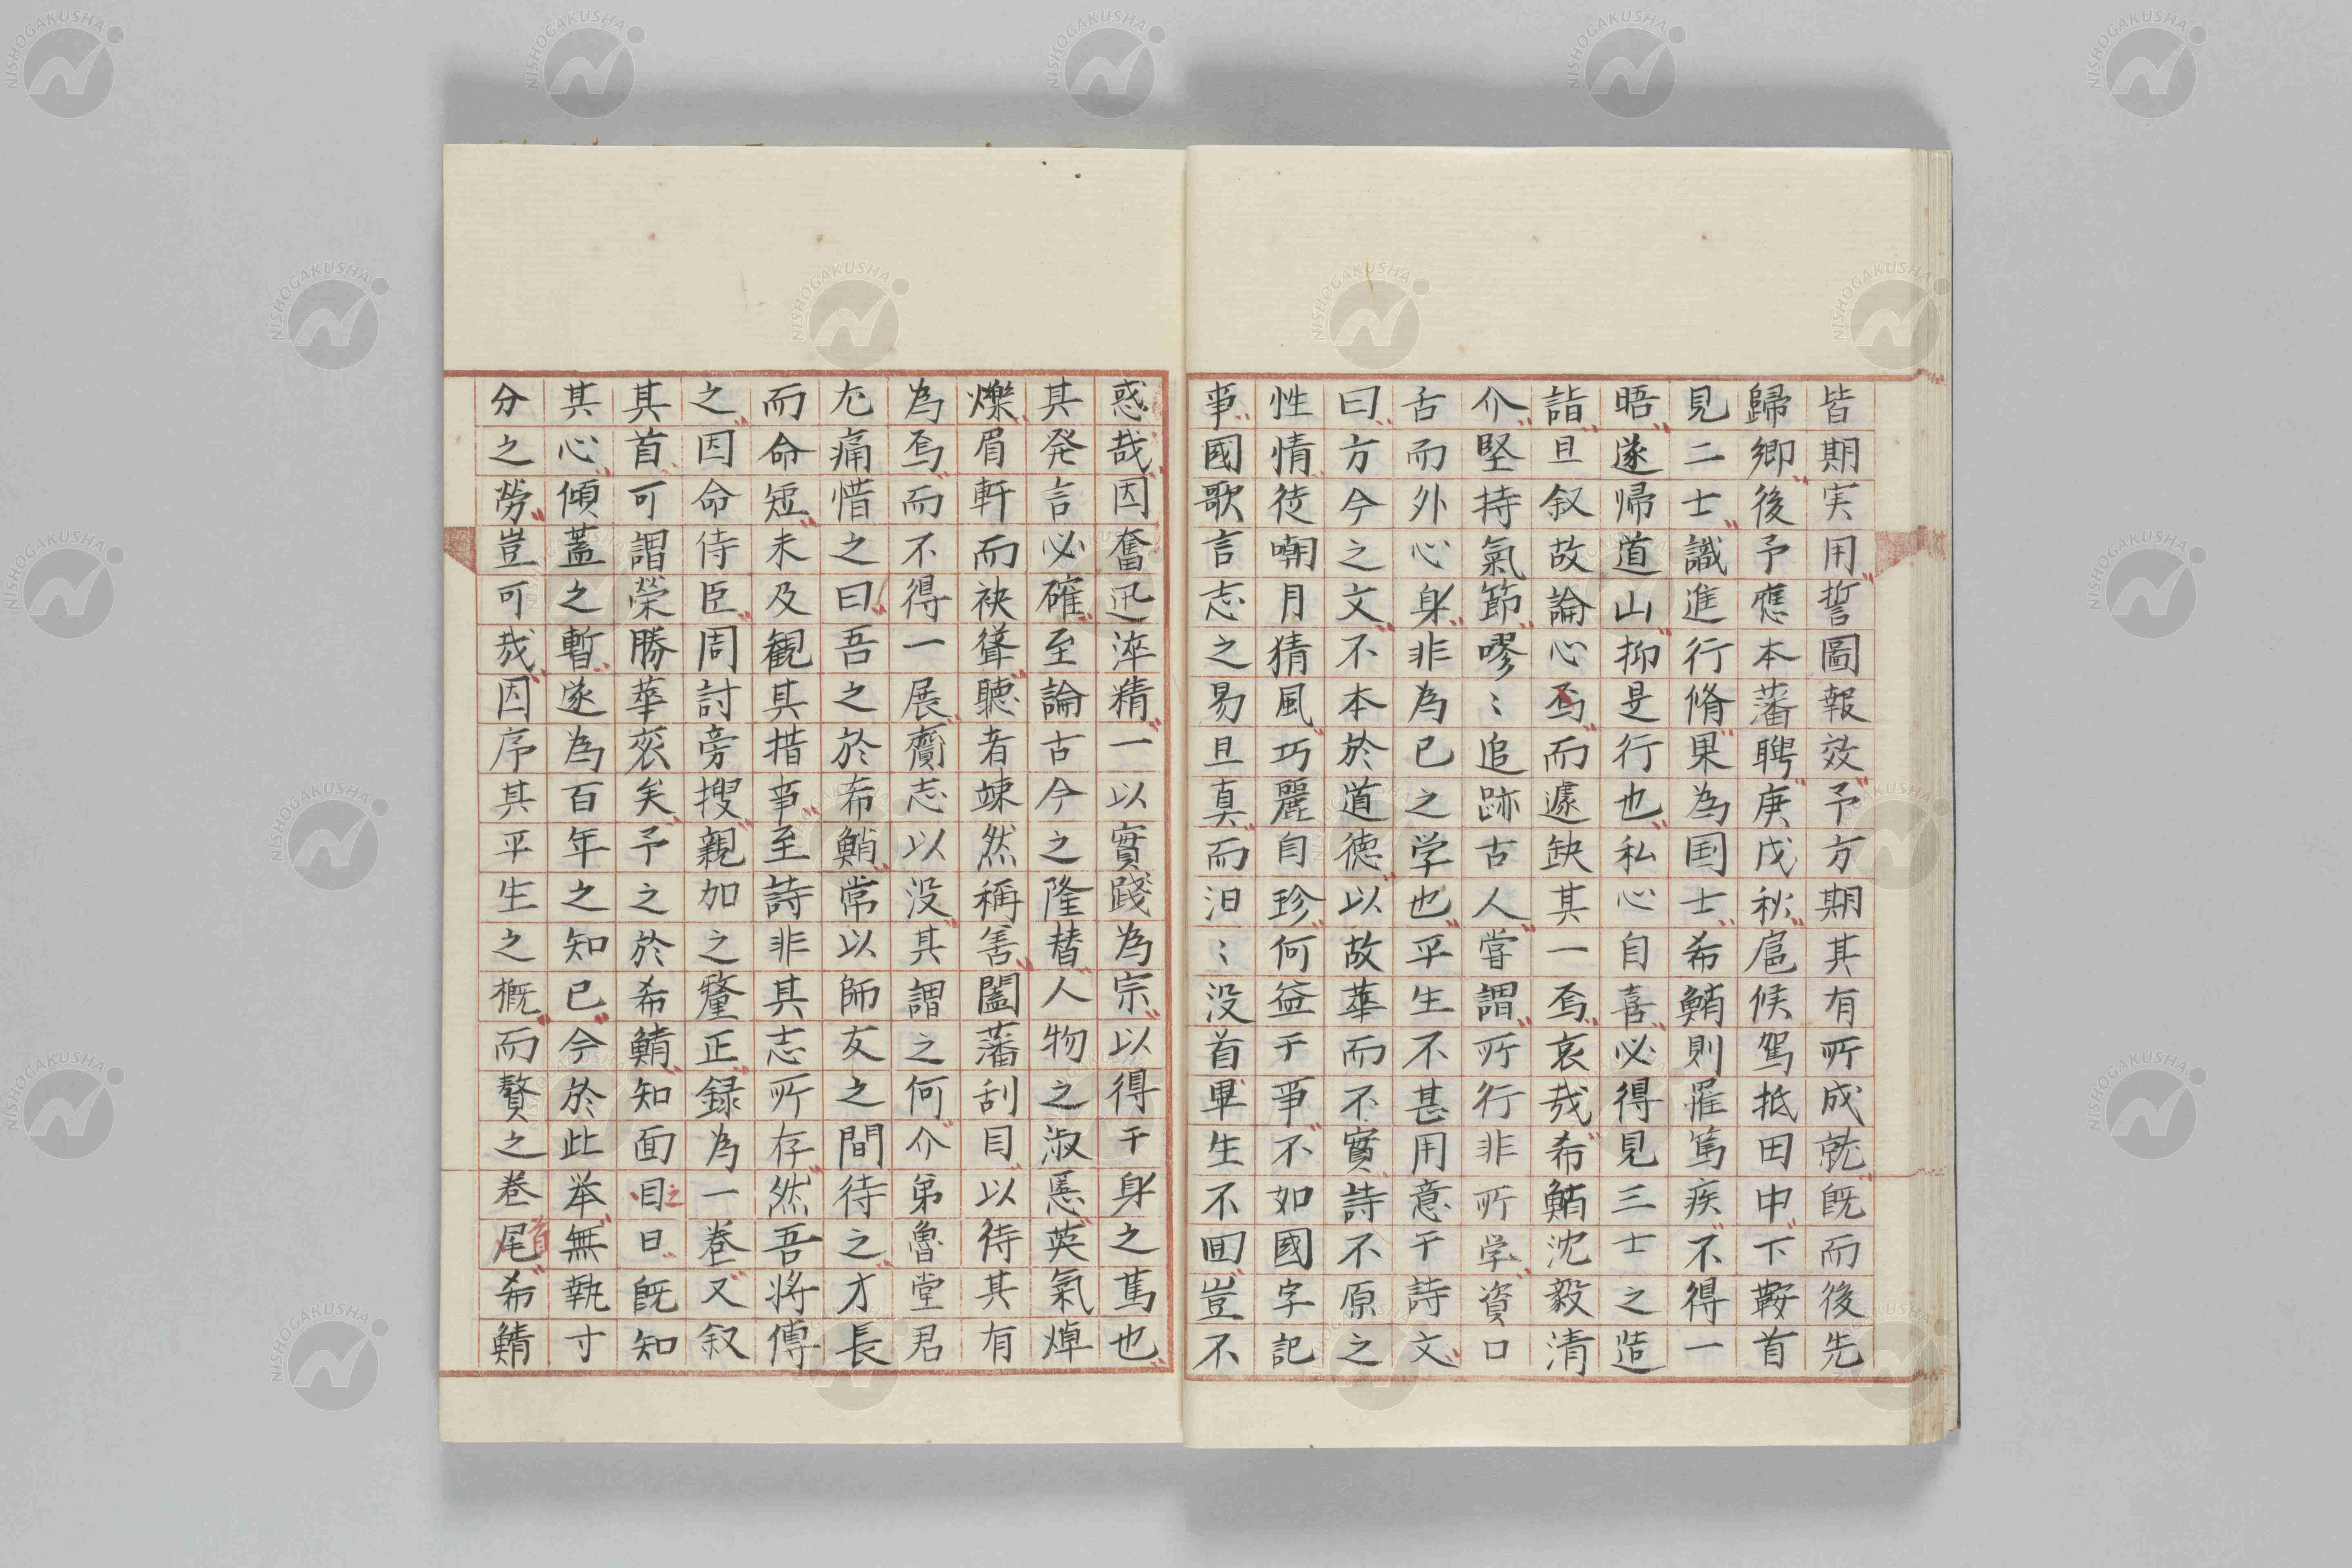 皆期実用誓圖報效予方期其有所成就既而後先
歸鄉後予應本藩聘庚戌秋扈候駕抵田中下鞍首
見二士識進行脩果為国士希鮹則罹篤疾不得一
晤遂帰道山抑是行也私心自喜必得見三士之造
詣且叙故論心焉而遽缺其一焉哀哉希鮹沈毅清
介堅持氣節嘐〻追跡古人嘗謂所行非所学資口
舌而外心身非為已之学也平生不甚用意于詩文
曰方今之文不本於道德以故華而不實詩不原之
性情徒嘲月猜風巧麗自珍何益于事不如國字記
事國歌言志之易且真而汨〻没首畢生不囬豈不
惑哉因奮迅淬精一以實踐為宗以得于身之為也
其発言必確至論古今之隆替人物之淑慝英氣焯
爍眉軒而袂聳聽者竦然稱善闔藩刮目以待其有
為焉而不得一展齎志以没其謂之何介弟魯堂君
尤痛惜之曰吾之於希鮹常以師友之間待之才長
而命短未及観其措事至詩非其志所存然吾將傳
之因命侍臣周討旁搜親加之釐正録為一巻又叙
其首可謂榮勝華衮矣予之於希鯖知面目之日既知
其心傾蓋之暫遂為百年之知已今於此举無執寸
分之勞豈可哉因序其平生之概而贅之巻尾首希鯖
NISHOGAKUSHA